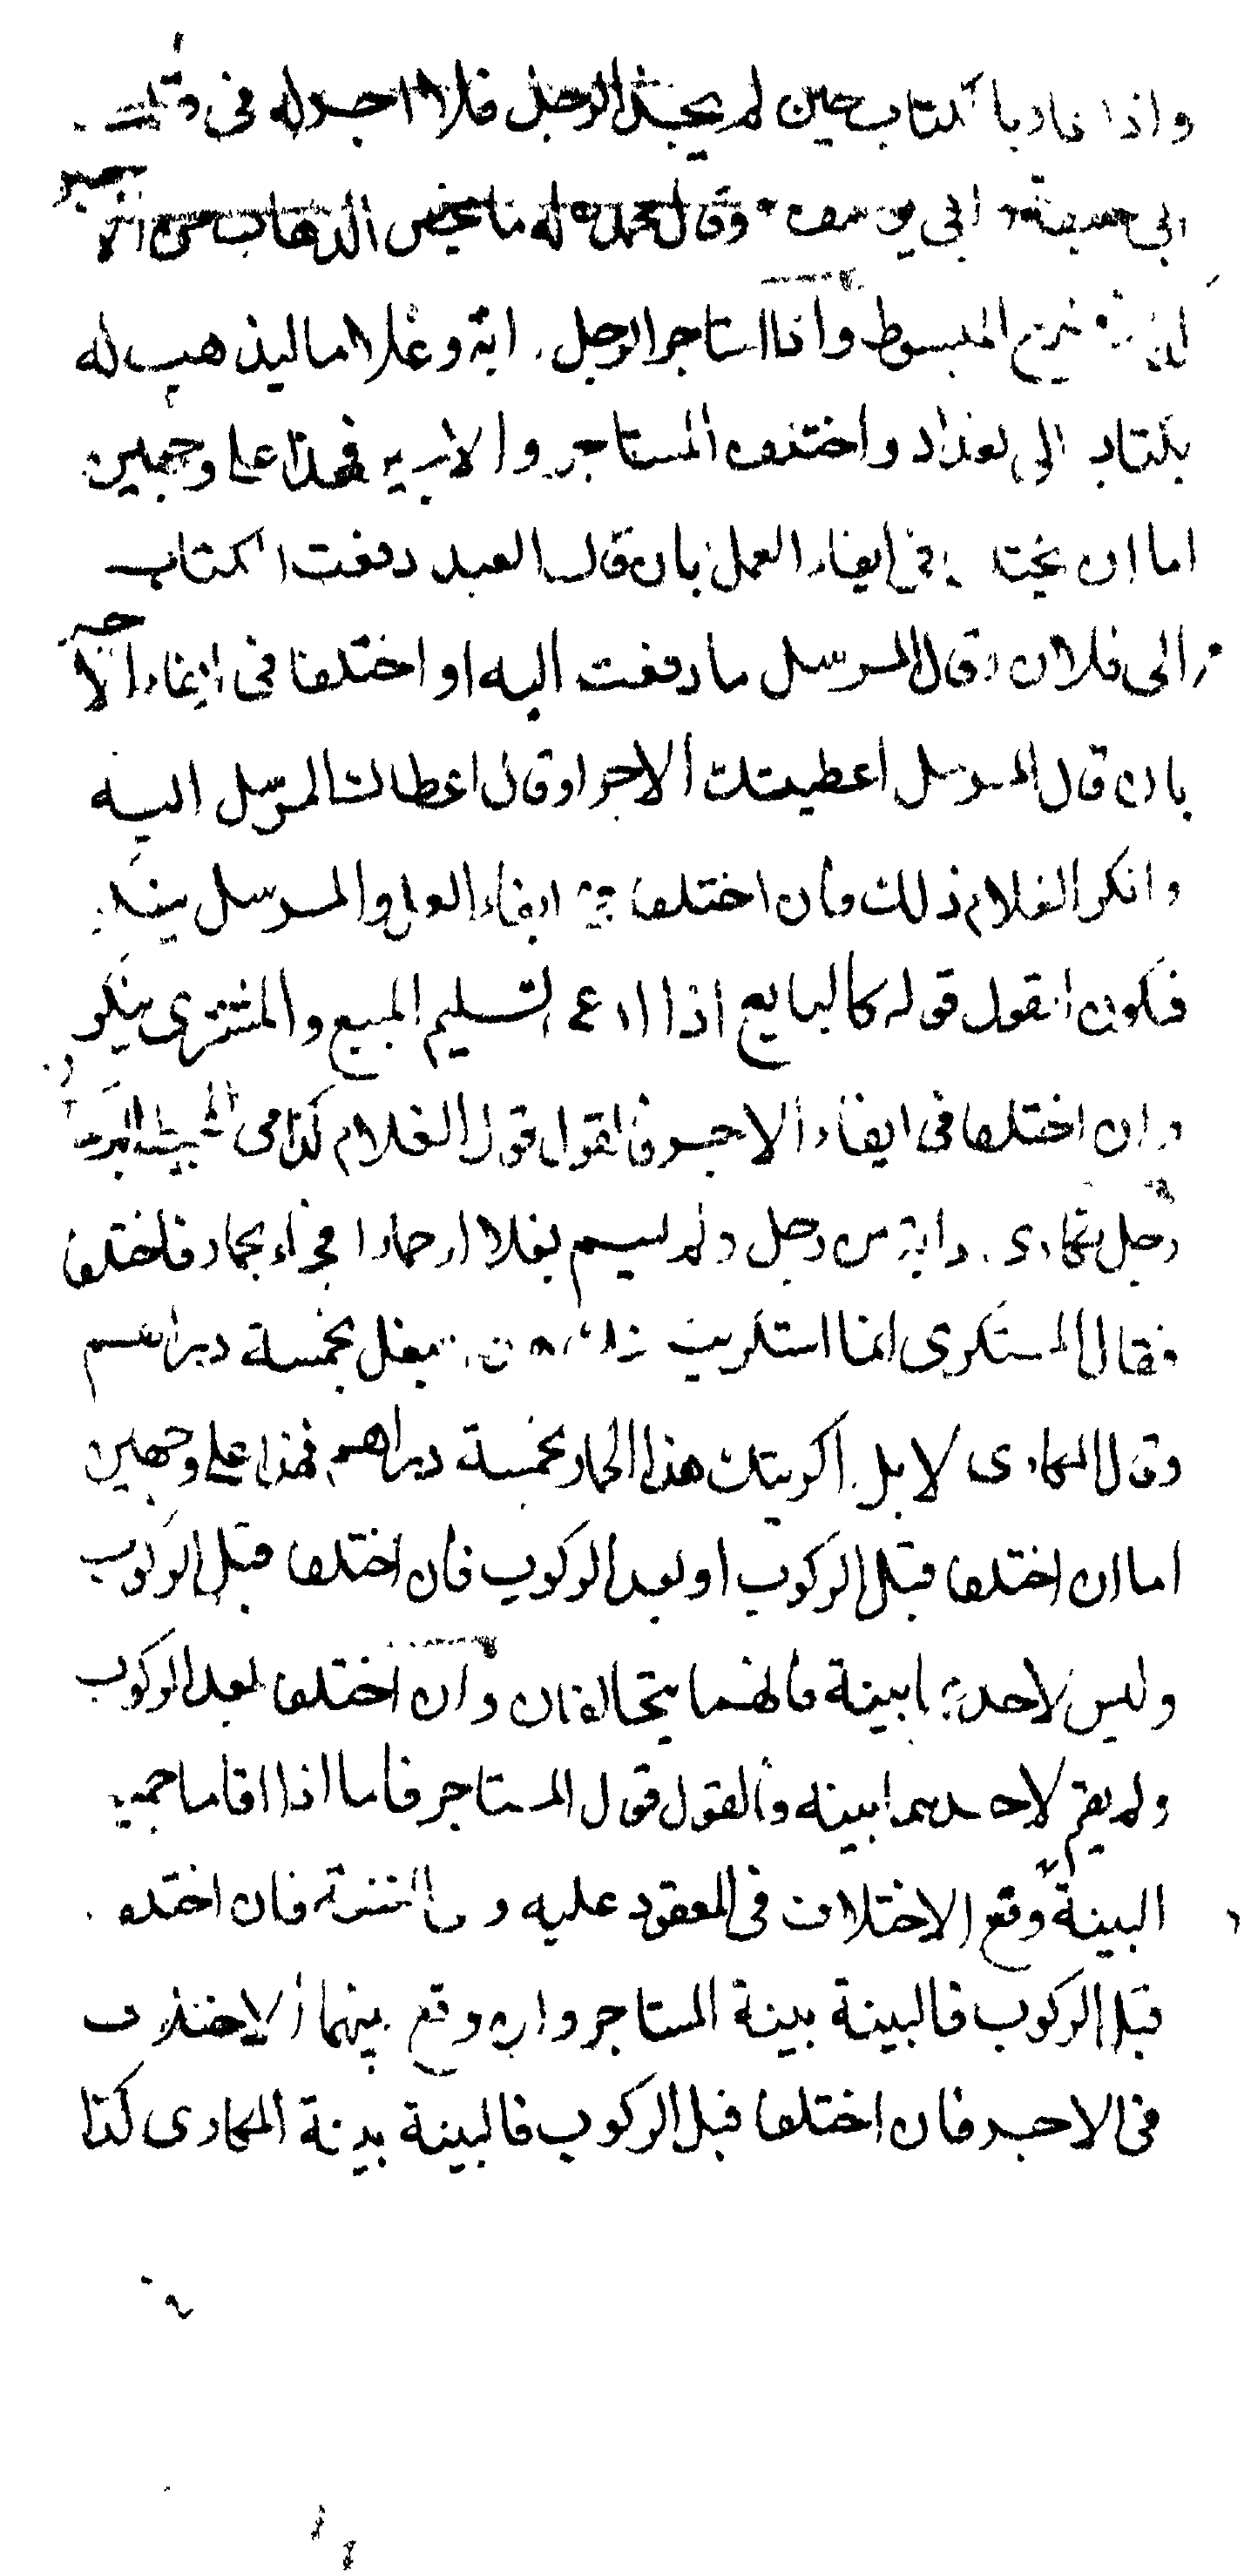 واذا عاد بالكتاب حين لم يجد الرجل فلا اجر له في قول
ابي حنيفة وابي يوسف وقال محمد له ما يخص الذهاب من الاجر
شرح المبسوط واذا استاجر الرجل دابة وغلاما ليذهب له
بكتاب الى بغداد واختلف المستاجر والاجير فهذا على وجهين
اما ان يختلفا في ايفاء العمل بان قال العبد دفعت الكتاب
الى فلان وقال المرسل ما دفعت اليه او اختلفا في ايفاء الاجر
بان قال المرسل اعطيتك الاجر او قال اعطاك المرسل اليه
وانكر الغلام ذلك فان اختلفا في ايفاء العمل والمرسل ينكر
فيكون القول قوله كالبايع اذا ادعى تسليم المبيع والمشترى ينكر
وان اختلفا في ايفاء الاجر فالقول قول الغلام كذا في
رجل تكارى دابة من رجل ولم يسم بغلا او حمارا فجاء بحمار فاختلفا
فقال المستكرى انما استكريت منك بغل بخمسة دراهم
وقال المكارى لا بل اكريتك هذا الحمار بخمسة دراهم فهذا على وجهين
اما ان اختلفا قبل الركوب او بعد الركوب فان اختلفا قبل الركوب
وليس لاحدهما بينة فانهما يتحالفان وان اختلفا بعد الركوب
ولم يقم لاحدهما بينة فالقول قول المستاجر فاما اذا اقاما جميعا
البينة وقع الاختلاف في المعقود عليه فان اختلفا
قبل الركوب فالبينة بينة المستاجر وان وقع بينهما الاختلاف
في الاجر فان اختلفا قبل الركوب فالبينة بينة المكارى كذا